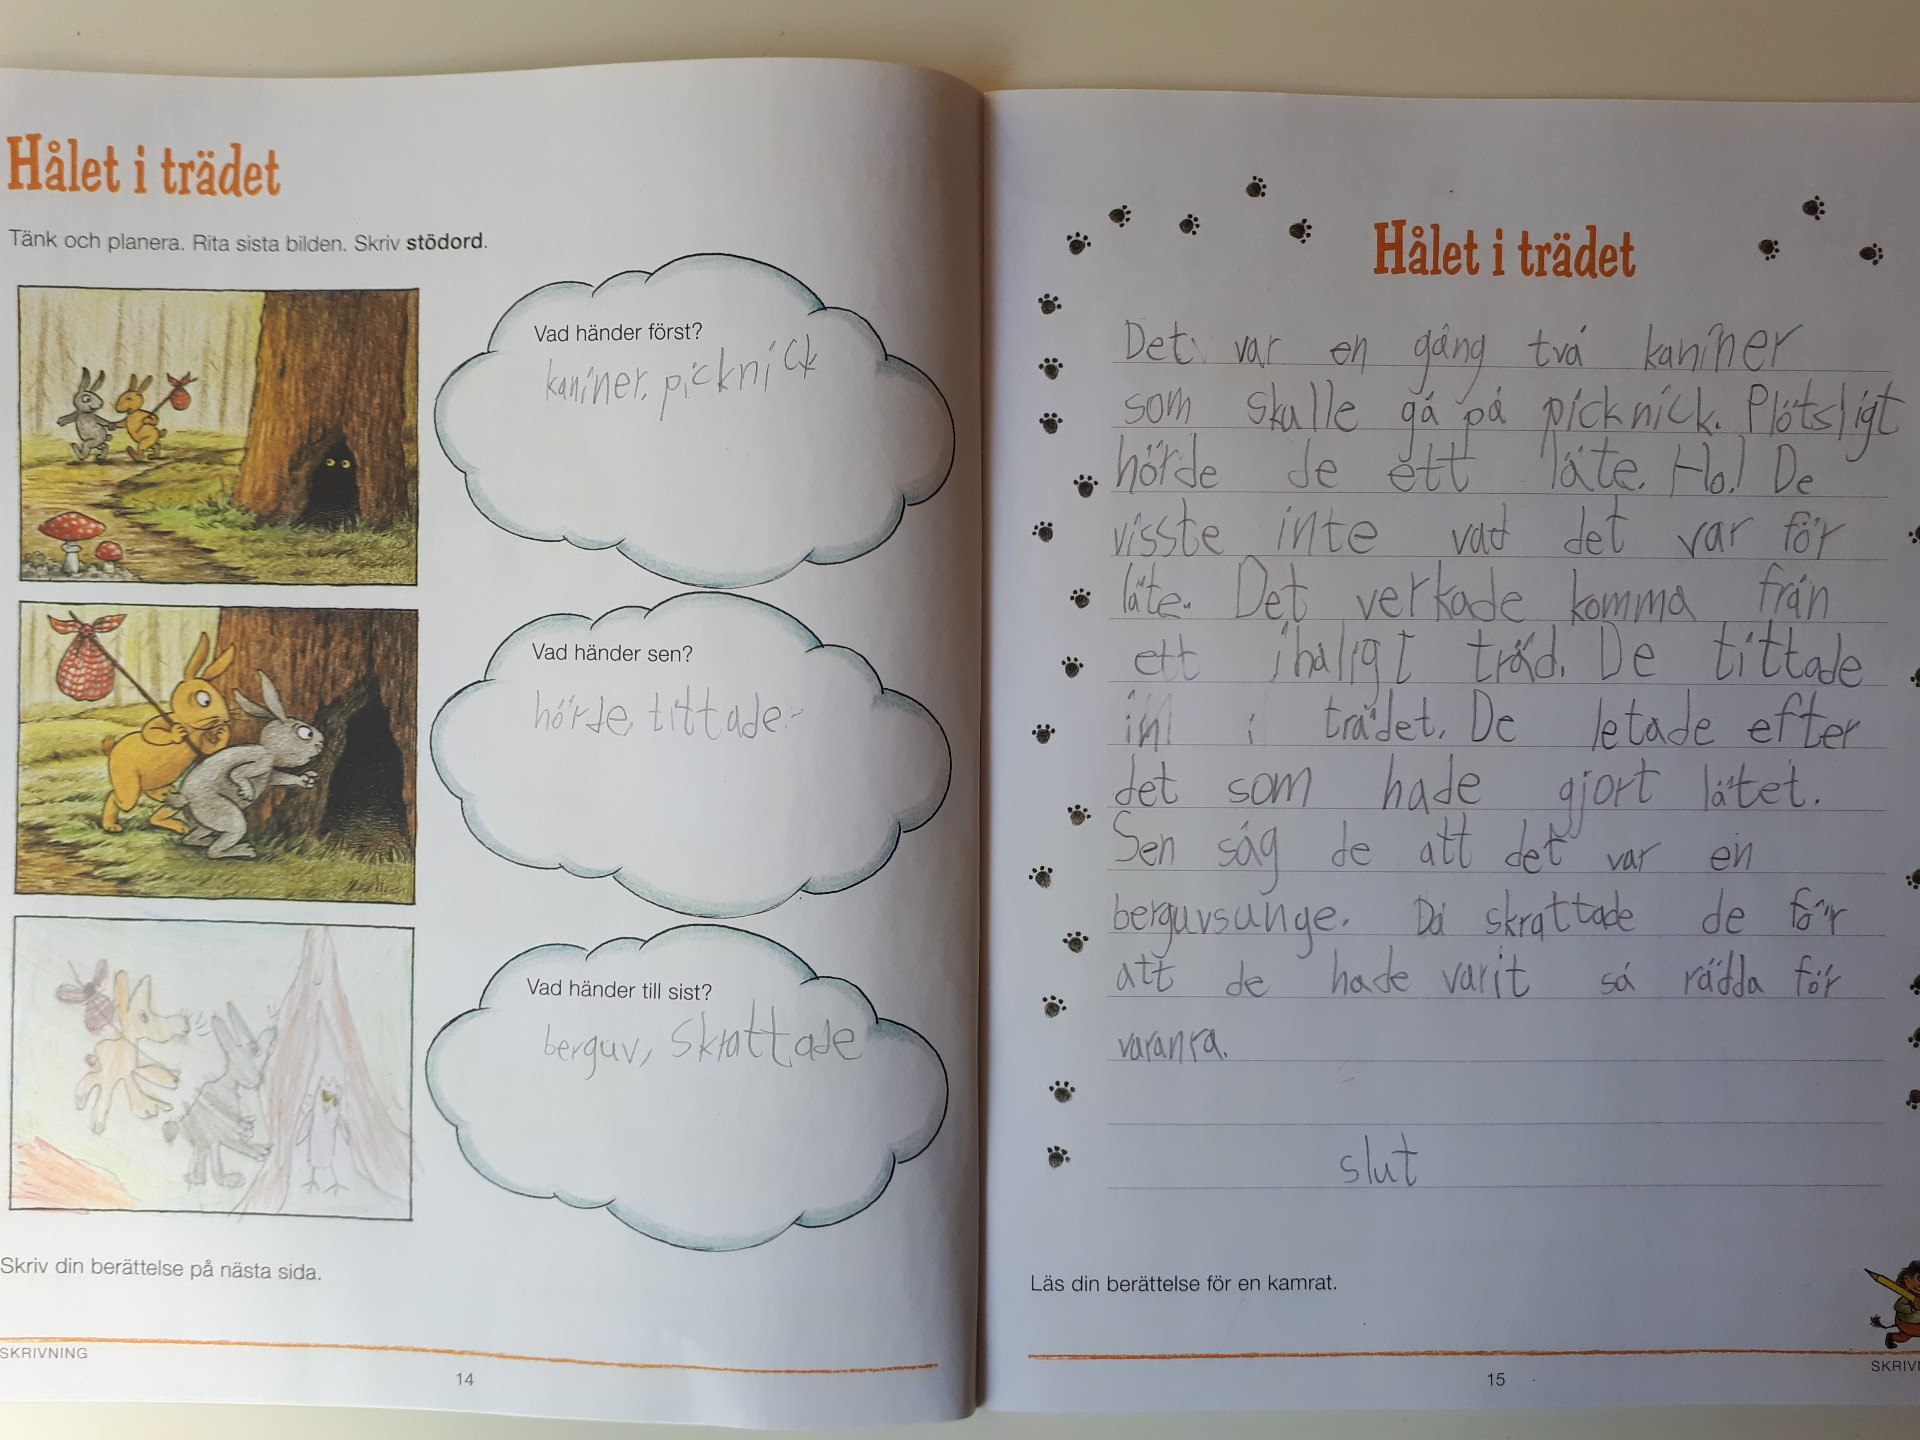 Hålet i trädet
Tänk och planera. Rita sista bilden. Skriv stödord.
Vad händer först?
kaniner, picknick
Vad händer sen?
hörde, tittade
Vad händer till sist?
berguv, skrattade
Skriv din berättelse på nästa sida.
SKRIVNING
14
Hålet i trädet
Det var en gång två kaniner
som skulle gå på picknick. Plötsligt
hörde de ett läte. Ho! De
visste inte vad det var för
läte. Det verkade komma från
ett ihåligt träd. De tittade
in i trädet. De letade efter
det som hade gjort lätet.
Sen såg de att det var en
berguvsunge. Då skrattade de för
att de hade varit så rädda för
varanra.
slut
Läs din berättelse för en kamrat.
SKRIVN
15